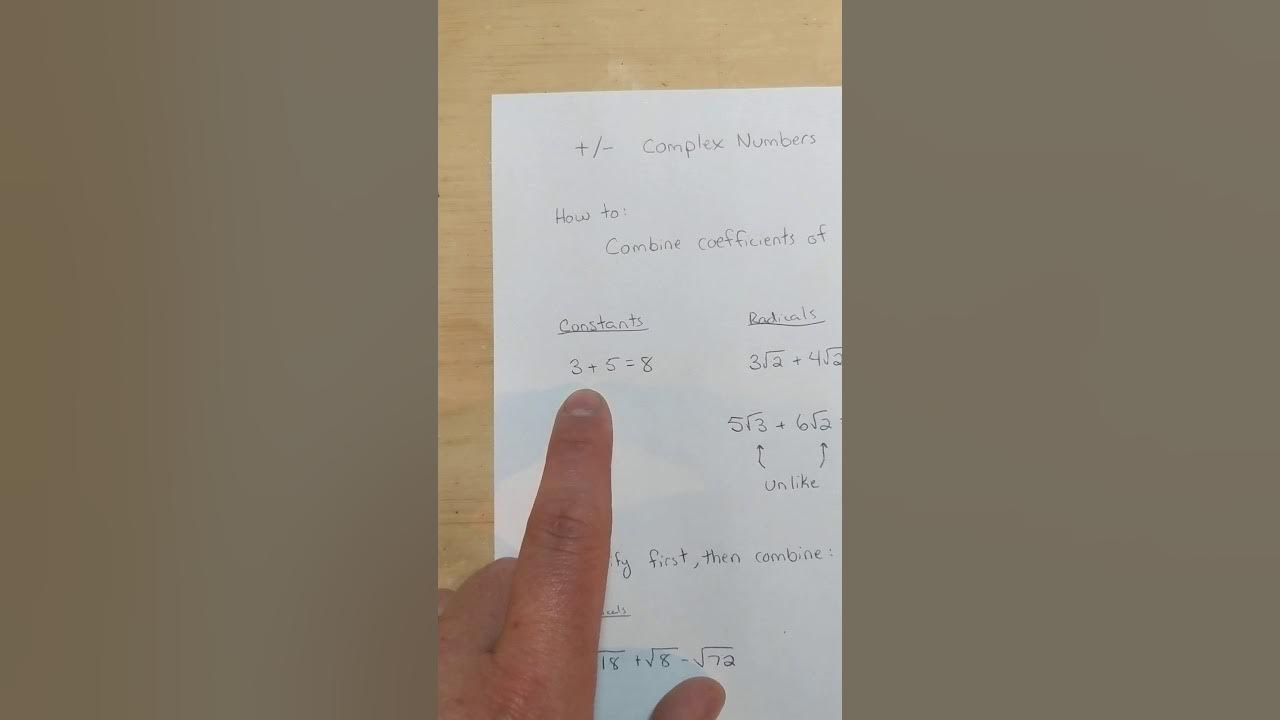 +/- Complex Numbers
How to:
Combine coefficients of
Constants Radicals
3 + 5 = 8 3√2 + 4√2
5√3 + 6√2
↑ ↑
unlike
first, then combine:
√18 + √8 - √72